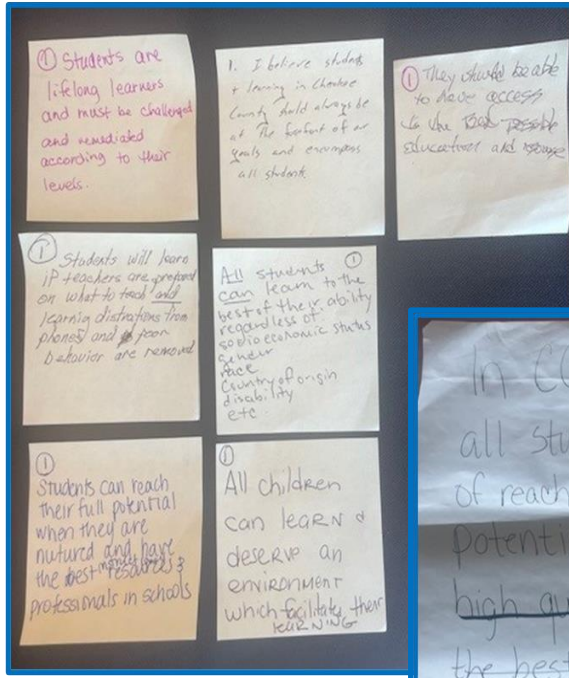 ① Students are
lifelong learners
and must be challenged
and remediated
according to their
levels.
1. I believe students
+ learning in Cherokee
County should always be
at the forfront of our
goals and encompass
all students
① They should be able
to have access
to the
education and
① Students will learn
if teachers are prepared
on what to teach and
learning distrations from
phones and poor
behavior are removed
All students ①
can learn to the
best of their ability
regardless of:
socio economic status
gender
race
Country of origin
disability
etc.
①
Students can reach
their full potential
when they are
nutured and have
the best resources &
professionals in schools
①
All children
can leaRN &
deserve an
enviRonment
which facilitates their
leaRNING
In CC
all stu
of reach
potenti
high qu
the best